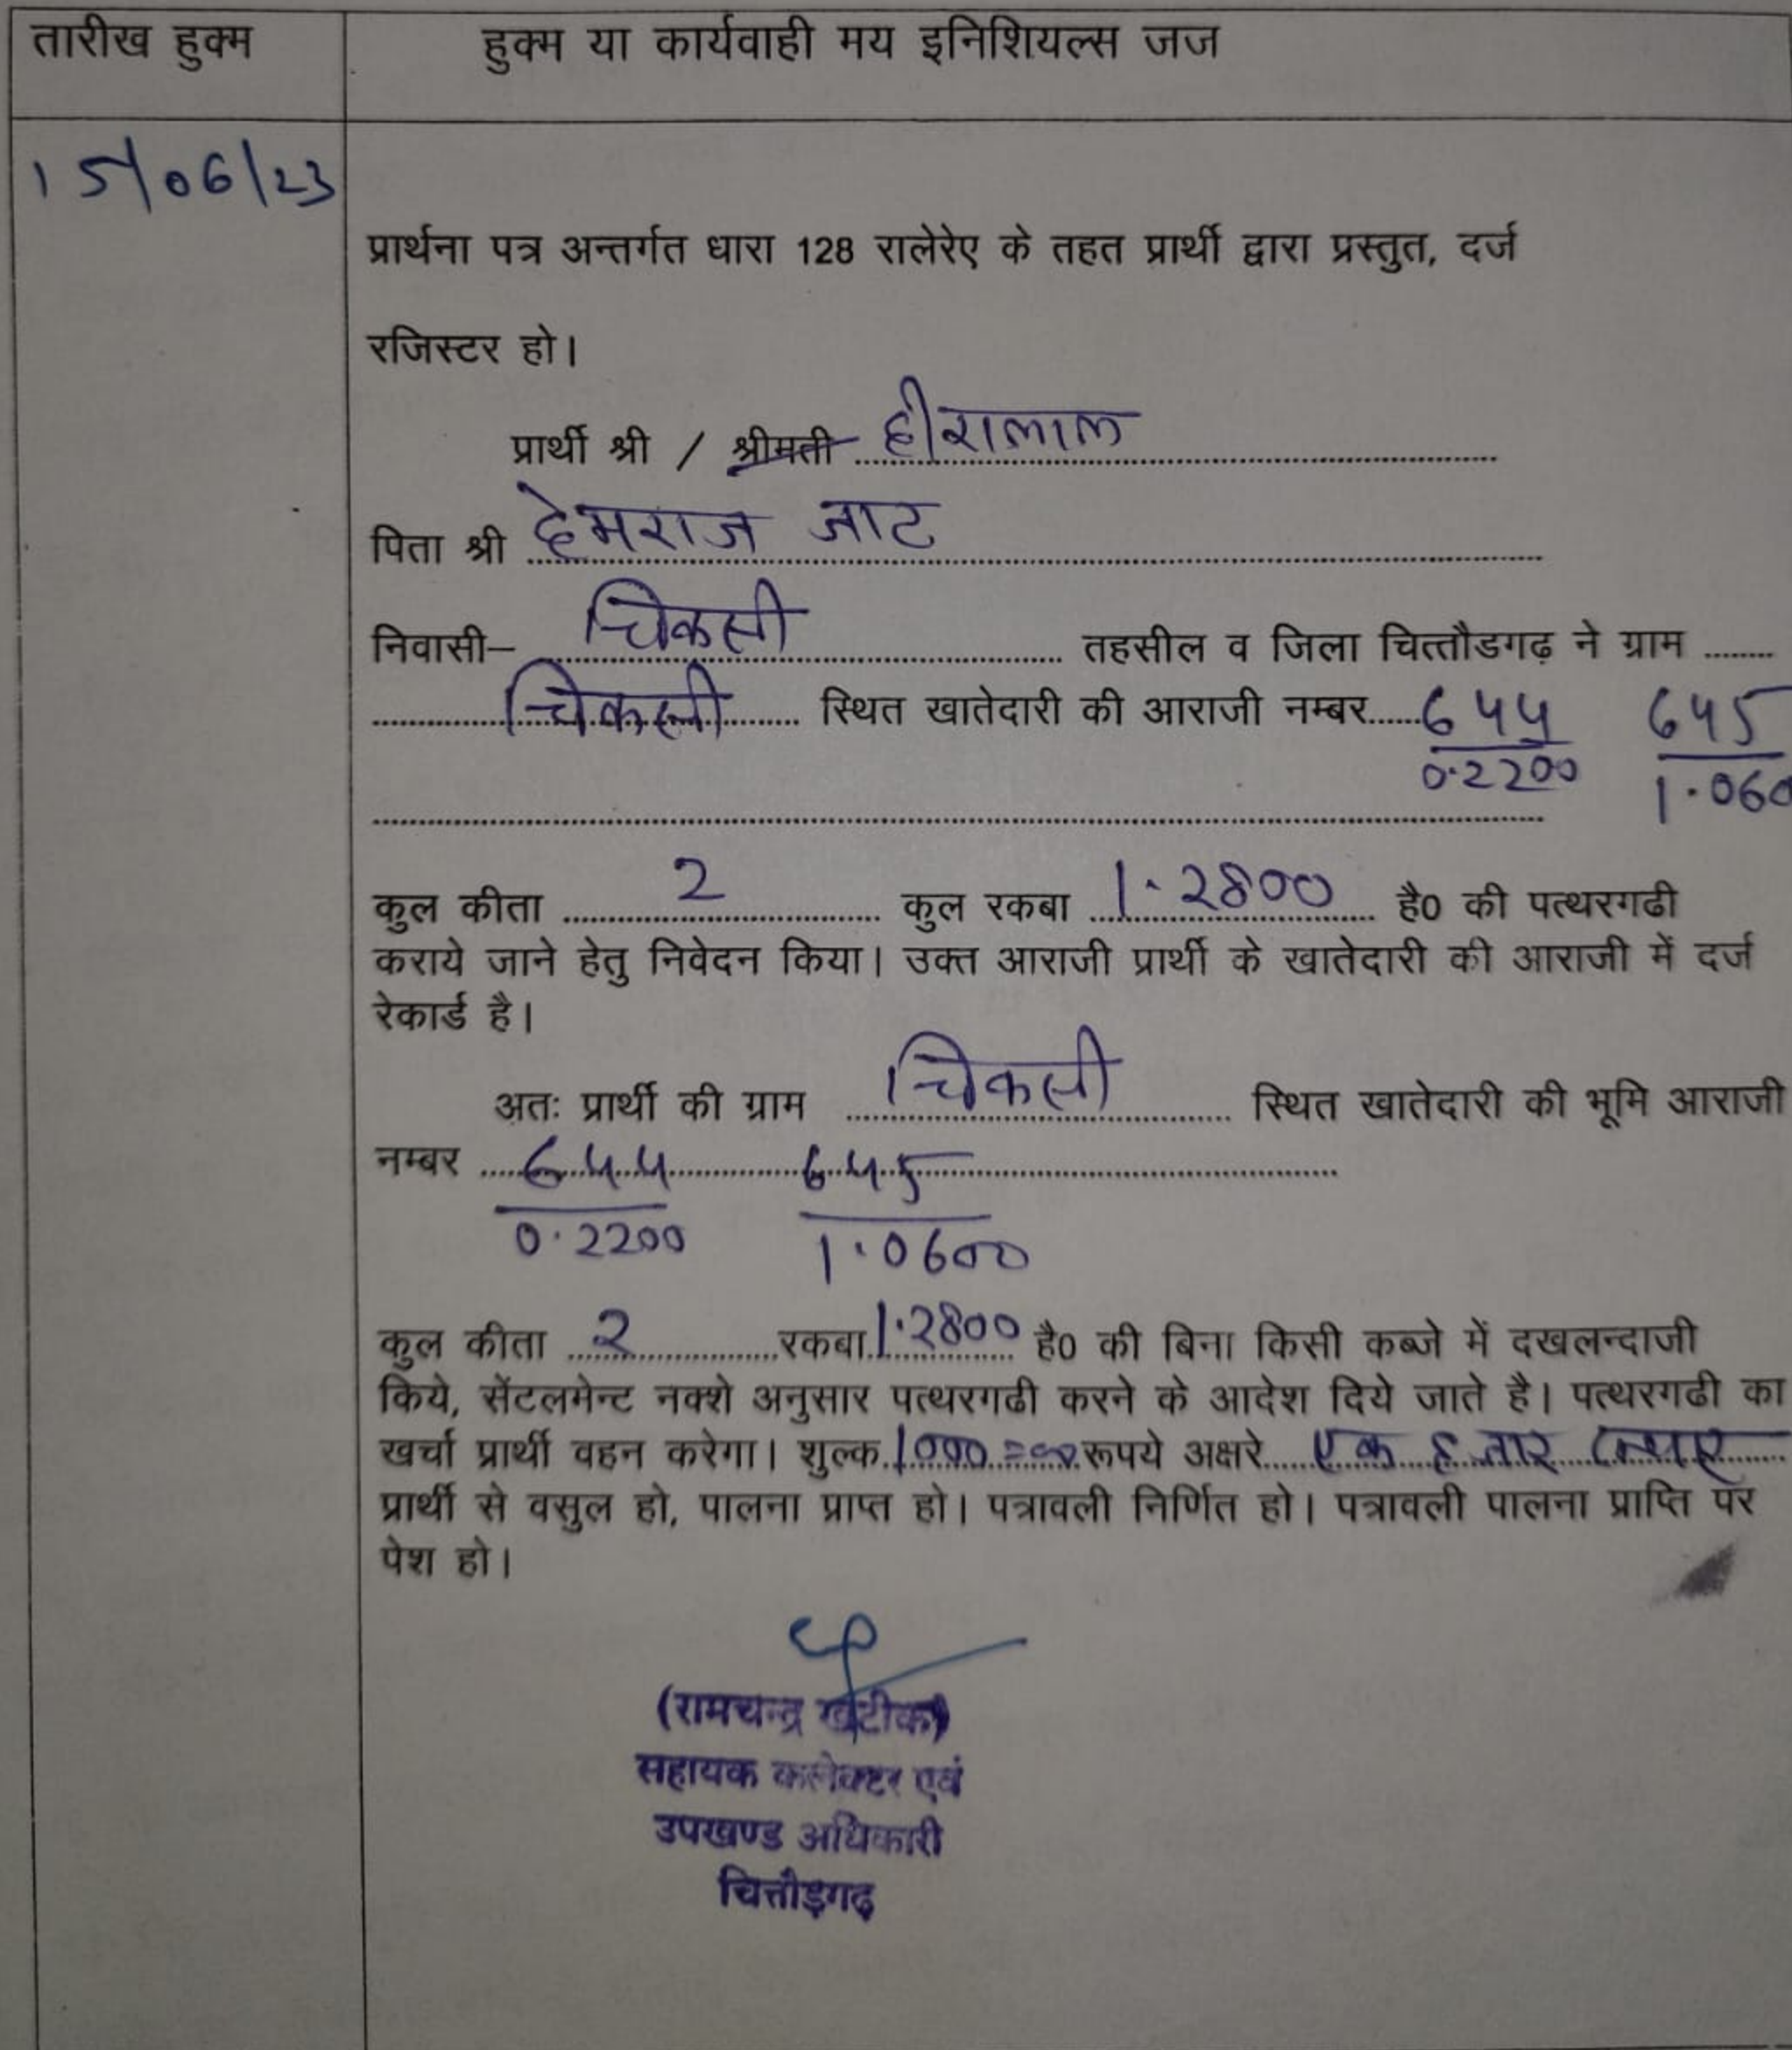 तारीख हुक्म
हुक्म या कार्यवाही मय इनिशियल्स जज
15/06/23
प्रार्थना पत्र अन्तर्गत धारा 128 रालेरेए के तहत प्रार्थी द्वारा प्रस्तुत, दर्ज
रजिस्टर हो।
प्रार्थी श्री / श्रीमती हीरालाल
पिता श्री हेमराज जाट
निवासी– चिकसी तहसील व जिला चित्तौडगढ़ ने ग्राम
चिकसी स्थित खातेदारी की आराजी नम्बर 644 645
0.2200 1.060
कुल कीता 2 कुल रकबा 1.2800 है0 की पत्थरगढी
कराये जाने हेतु निवेदन किया। उक्त आराजी प्रार्थी के खातेदारी की आराजी में दर्ज
रेकार्ड है।
अतः प्रार्थी की ग्राम चिकसी स्थित खातेदारी की भूमि आराजी
नम्बर 644 645
0.2200 1.0600
कुल कीता 2 रकबा 1.2800 है0 की बिना किसी कब्जे में दखलन्दाजी
किये, सेंटलमेन्ट नक्शे अनुसार पत्थरगढी करने के आदेश दिये जाते है। पत्थरगढी का
खर्चा प्रार्थी वहन करेगा। शुल्क 1000=00 रूपये अक्षरे एक हजार
प्रार्थी से वसुल हो, पालना प्राप्त हो। पत्रावली निर्णित हो। पत्रावली पालना प्राप्ति पर
पेश हो।
(रामचन्द्र खटीक)
सहायक कलेक्टर एवं
उपखण्ड अधिकारी
चित्तौड़गढ़